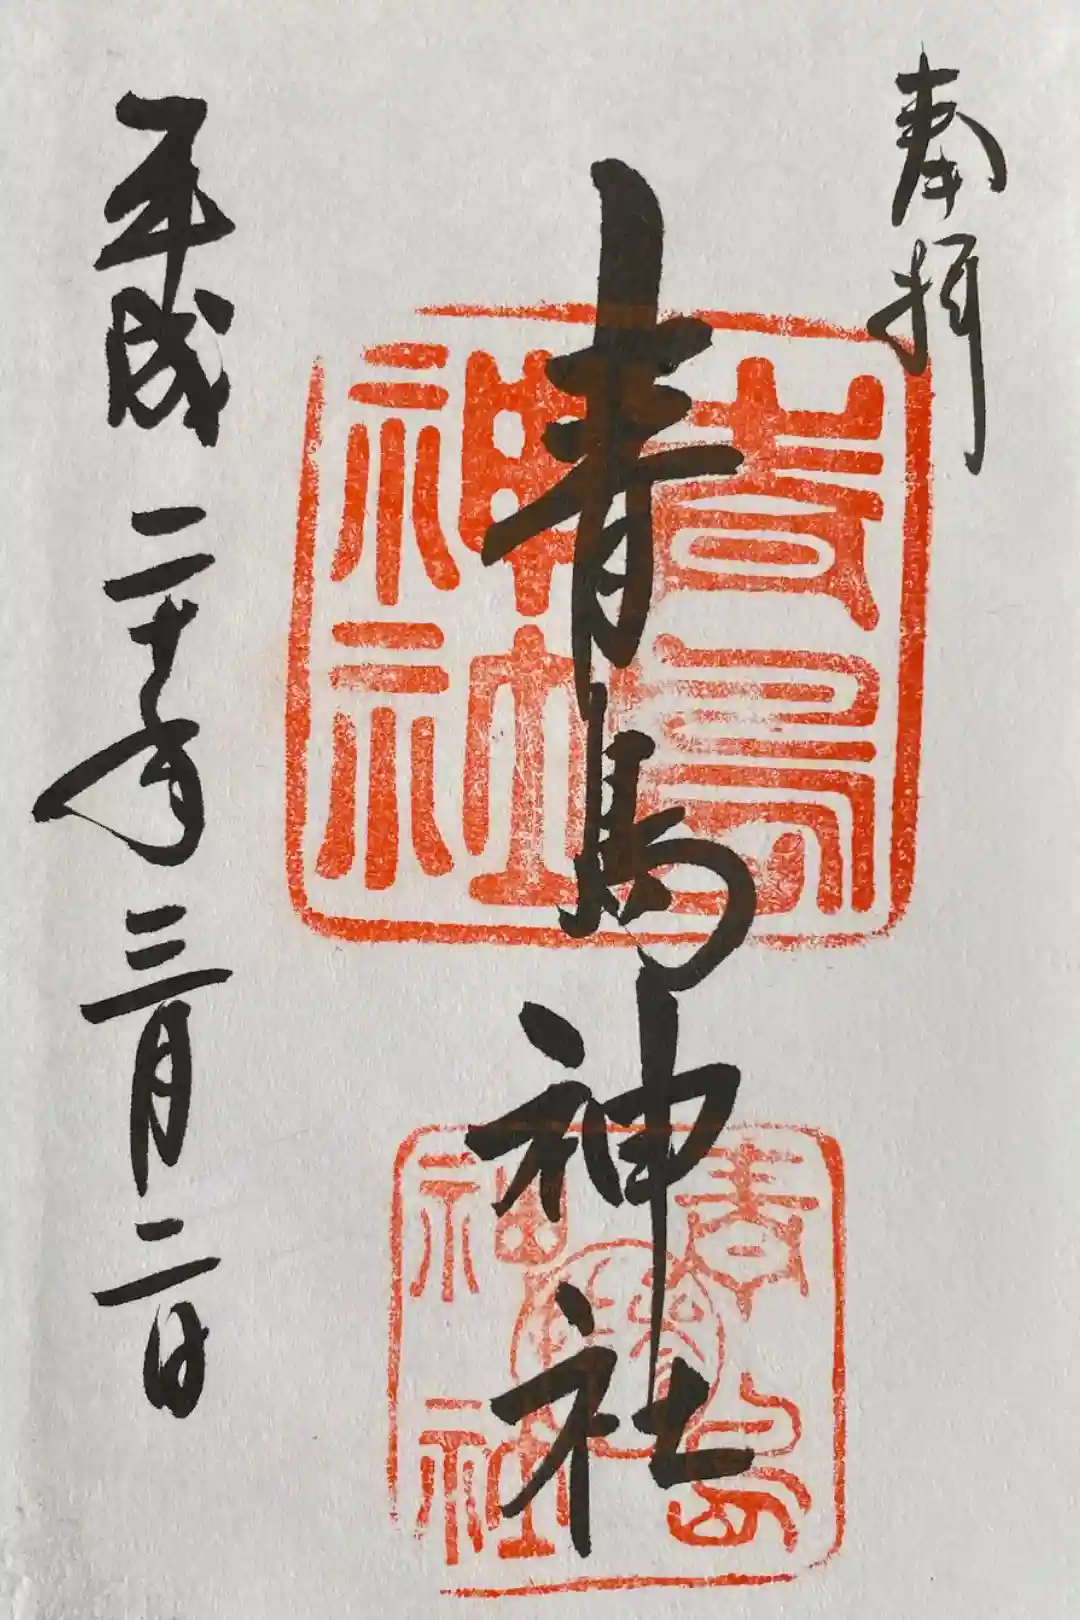 奉拝
青島神社
平成二十年三月二日
青島
神社
青島
神社